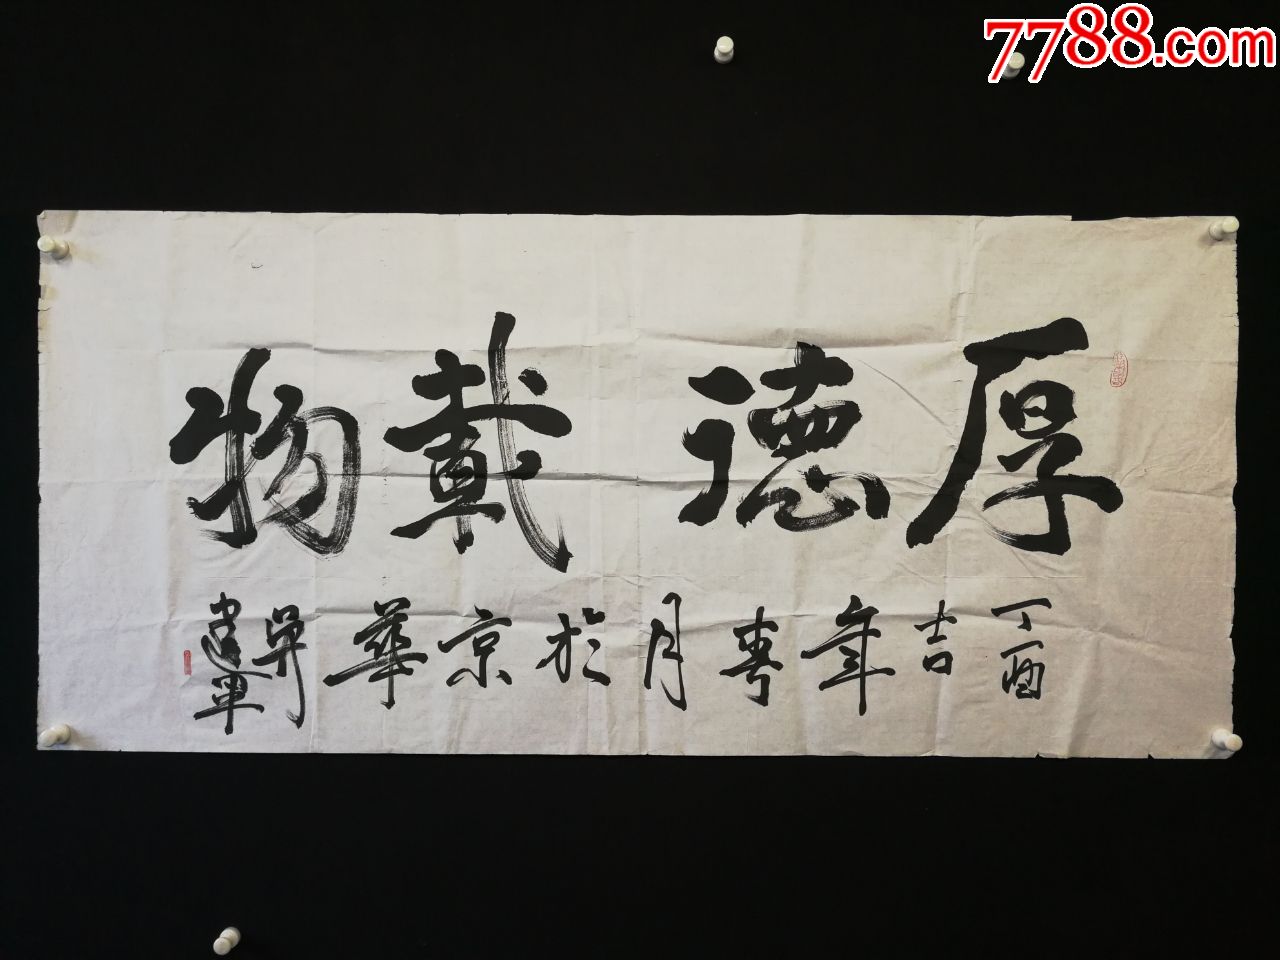 7788.com
厚德載物
丁酉吉年春月於京華吴建軍